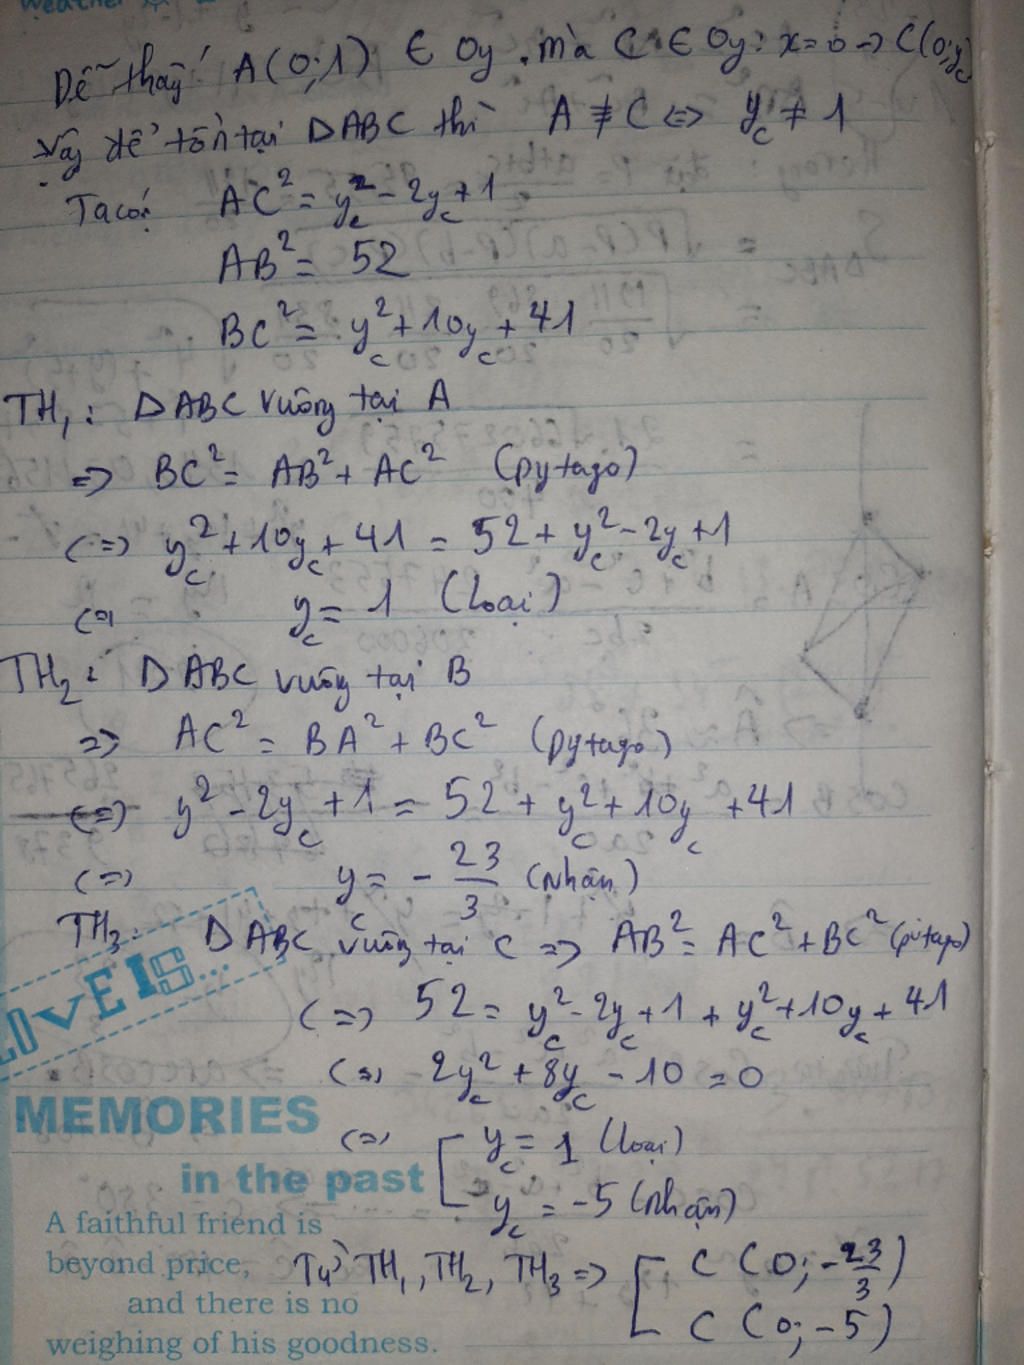 Weather
Dễ thấy A(0;1) ∈ Oy. mà C ∈ Oy: x=0 → C(0;y_c)
Vậy để tồn tại ΔABC thì A ≢ C <=> y_c ≠ 1
Ta có: AC² = y_c² - 2y_c + 1
AB² = 52
BC² = y_c² + 10y_c + 41
TH₁: ΔABC vuông tại A
=> BC² = AB² + AC² (pytago)
<=> y_c² + 10y_c + 41 = 52 + y_c² - 2y_c + 1
<=> y_c = 1 (loại)
TH₂: ΔABC vuông tại B
=> AC² = BA² + BC² (pytago)
<=> y² - 2y_c + 1 = 52 + y_c² + 10y_c + 41
<=> y_c = -23/3 (nhận)
TH₃: ΔABC vuông tại C => AB² = AC² + BC² (pitago)
<=> 52 = y_c² - 2y_c + 1 + y_c² + 10y_c + 41
<=> 2y_c² + 8y_c - 10 = 0
<=> [ y_c = 1 (loại)
y_c = -5 (nhận)
Từ TH₁, TH₂, TH₃ => [ C (0; -23/3)
C (0; -5)
LOVE IS...
MEMORIES
in the past
A faithful friend is
beyond price,
and there is no
weighing of his goodness.